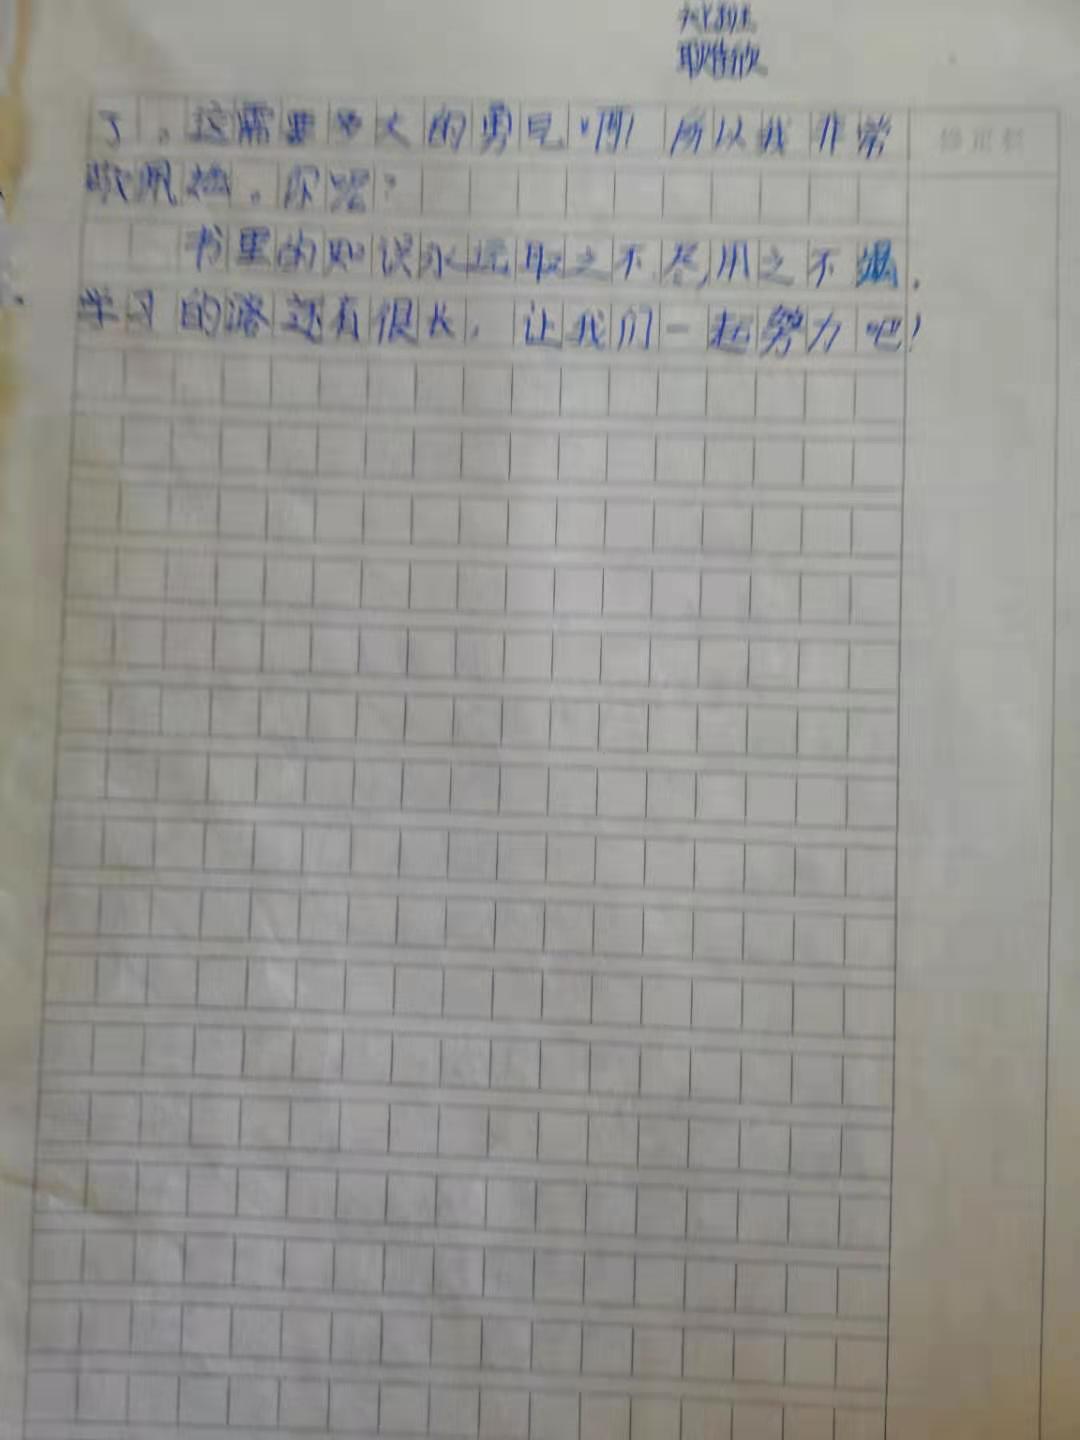 了。这需要多大的勇气啊！所以我非常
敬佩她。你呢？
书里的知识永远取之不尽,用之不竭.
学习的路还有很长，让我们一起努力吧！
修正栏